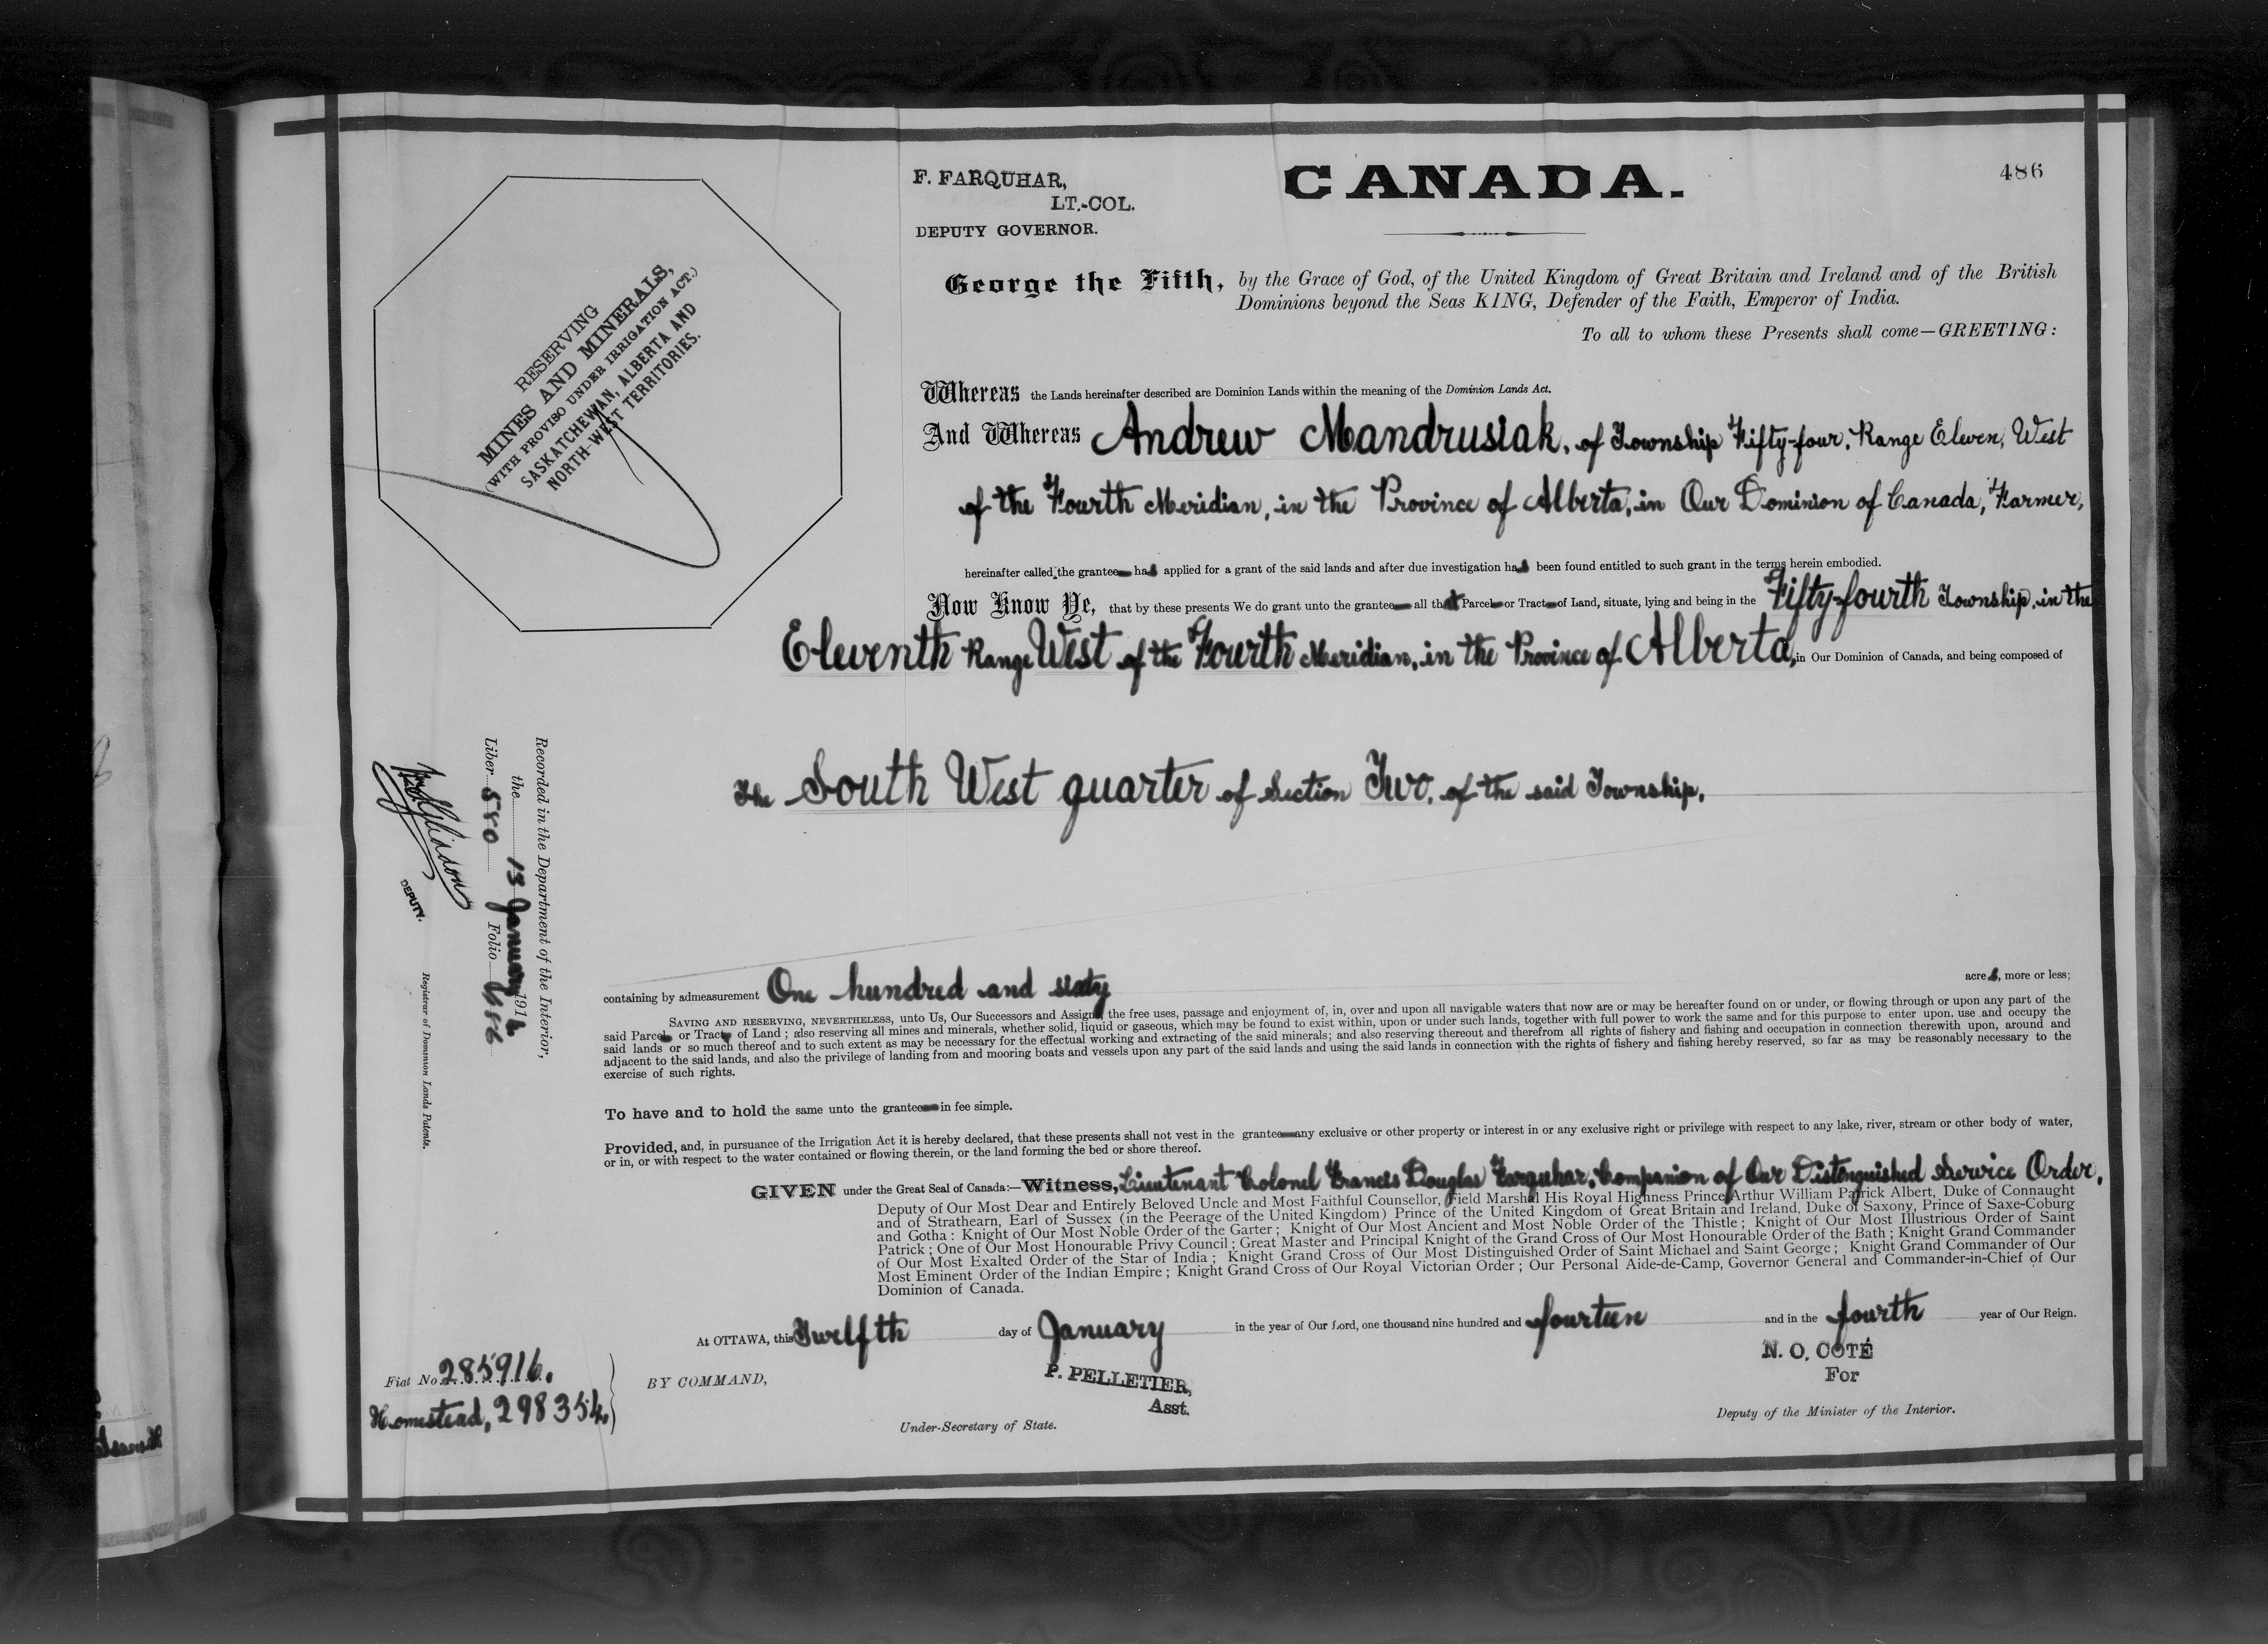 486
F. FARQUHAR,
LT.-COL.
DEPUTY GOVERNOR.
CANADA.
RESERVING
MINES AND MINERALS,
(WITH PROVISO UNDER IRRIGATION ACT.)
SASKATCHEWAN, ALBERTA AND
NORTH-WEST TERRITORIES.
George the Fifth, by the Grace of God, of the United Kingdom of Great Britain and Ireland and of the British
Dominions beyond the Seas KING, Defender of the Faith, Emperor of India.
To all to whom these Presents shall come—GREETING:
Whereas the Lands hereinafter described are Dominion Lands within the meaning of the Dominion Lands Act.
And Whereas Andrew Mandrusiak, of Township Fifty-four, Range Eleven, West
of the Fourth Meridian, in the Province of Alberta, in Our Dominion of Canada, Farmer,
hereinafter called the grantee has applied for a grant of the said lands and after due investigation has been found entitled to such grant in the terms herein embodied.
Now Know Ye, that by these presents We do grant unto the grantee all that Parcel or Tract of Land, situate, lying and being in the Fifty-fourth Township, in the
Eleventh Range West of the Fourth Meridian, in the Province of Alberta, in Our Dominion of Canada, and being composed of
The South West quarter of Section Two, of the said Township,
containing by admeasurement One hundred and sixty acres, more or less;
SAVING AND RESERVING, NEVERTHELESS, unto Us, Our Successors and Assigns, the free uses, passage and enjoyment of, in, over and upon all navigable waters that now are or may be hereafter found on or under, or flowing through or upon any part of the
said Parcel or Tract of Land; also reserving all mines and minerals, whether solid, liquid or gaseous, which may be found to exist within, upon or under such lands, together with full power to work the same and for this purpose to enter upon, use and occupy the
said lands or so much thereof and to such extent as may be necessary for the effectual working and extracting of the said minerals; and also reserving thereout and therefrom all rights of fishery and fishing and occupation in connection therewith upon, around and
adjacent to the said lands, and also the privilege of landing from and mooring boats and vessels upon any part of the said lands and using the said lands in connection with the rights of fishery and fishing hereby reserved, so far as may be reasonably necessary to the
exercise of such rights.
To have and to hold the same unto the grantee in fee simple.
Provided, and, in pursuance of the Irrigation Act it is hereby declared, that these presents shall not vest in the grantee any exclusive or other property or interest in or any exclusive right or privilege with respect to any lake, river, stream or other body of water,
or in, or with respect to the water contained or flowing therein, or the land forming the bed or shore thereof.
GIVEN under the Great Seal of Canada:—Witness, Lieutenant Colonel Francis Douglas Farquhar, Companion of Our Distinguished Service Order,
Deputy of Our Most Dear and Entirely Beloved Uncle and Most Faithful Counsellor, Field Marshal His Royal Highness Prince Arthur William Patrick Albert, Duke of Connaught
and of Strathearn, Earl of Sussex (in the Peerage of the United Kingdom) Prince of the United Kingdom of Great Britain and Ireland, Duke of Saxony, Prince of Saxe-Coburg
and Gotha: Knight of Our Most Noble Order of the Garter; Knight of Our Most Ancient and Most Noble Order of the Thistle; Knight of Our Most Illustrious Order of Saint
Patrick; One of Our Most Honourable Privy Council; Great Master and Principal Knight of the Grand Cross of Our Most Honourable Order of the Bath; Knight Grand Commander
of Our Most Exalted Order of the Star of India; Knight Grand Cross of Our Most Distinguished Order of Saint Michael and Saint George; Knight Grand Commander of Our
Most Eminent Order of the Indian Empire; Knight Grand Cross of Our Royal Victorian Order; Our Personal Aide-de-Camp, Governor General and Commander-in-Chief of Our
Dominion of Canada.
At OTTAWA, this Twelfth day of January in the year of Our Lord, one thousand nine hundred and fourteen and in the fourth year of Our Reign.
BY COMMAND,
P. PELLETIER,
Asst.
Under-Secretary of State.
N. O. COTÉ
For
Deputy of the Minister of the Interior.
Fiat No. 285916.
Homestead, 298354.
Recorded in the Department of the Interior,
the 13 January 1914
Liber 580 Folio 486
DEPUTY.
Registrar of Dominion Lands Patents.